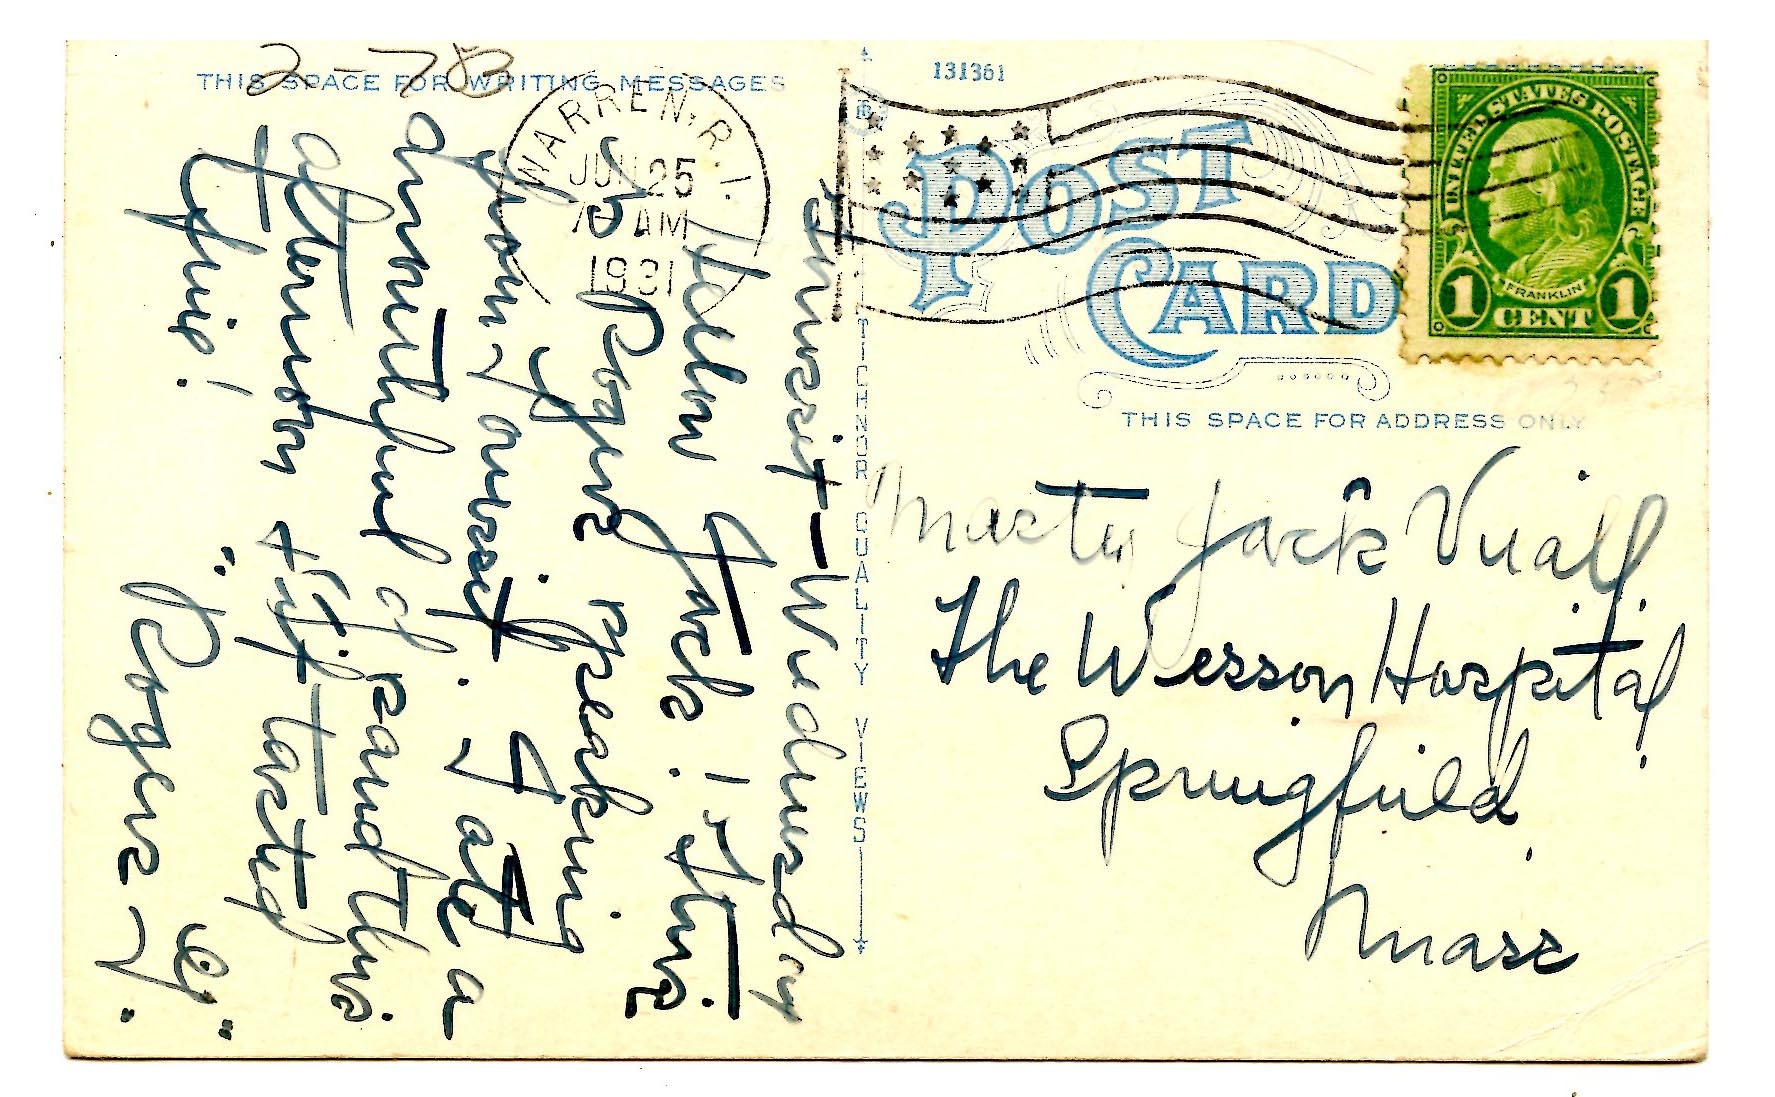 THIS SPACE FOR WRITING MESSAGES
2-783
WARREN, R.I.
JUN 25
AM
1931
131361
POST
CARD
UNITED STATES POSTAGE
FRANKLIN
1 CENT 1
THIS SPACE FOR ADDRESS ONLY
TICHNOR QUALITY VIEWS
Wednesday
Hellow Jack! - This
is Rogers speaking
from I ate a
mouthful of sand this
afternoon & it tasted
"Rogers V."
Master Jack Viall
The Wesson Hospital
Springfield
Mass